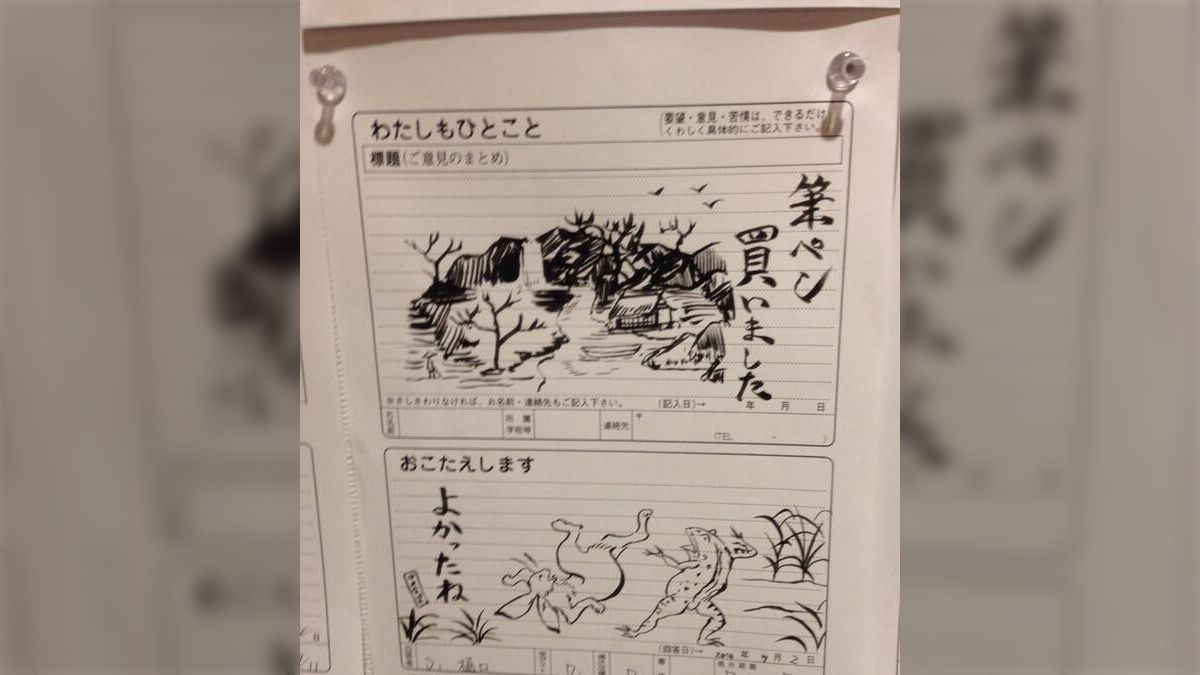 わたしもひとこと
(要望・意見・苦情は、できるだけ
くわしく具体的にご記入下さい。
標題(ご意見のまとめ)
筆ペン
買いました
※さしさわりなければ、お名前・連絡先もご記入下さい。
(記入日)→ 年 月 日
お名前
所属
学校等
連絡先
〒
(TEL - )
おこたえします
よかったね
(回答日)→ 年 月 2日